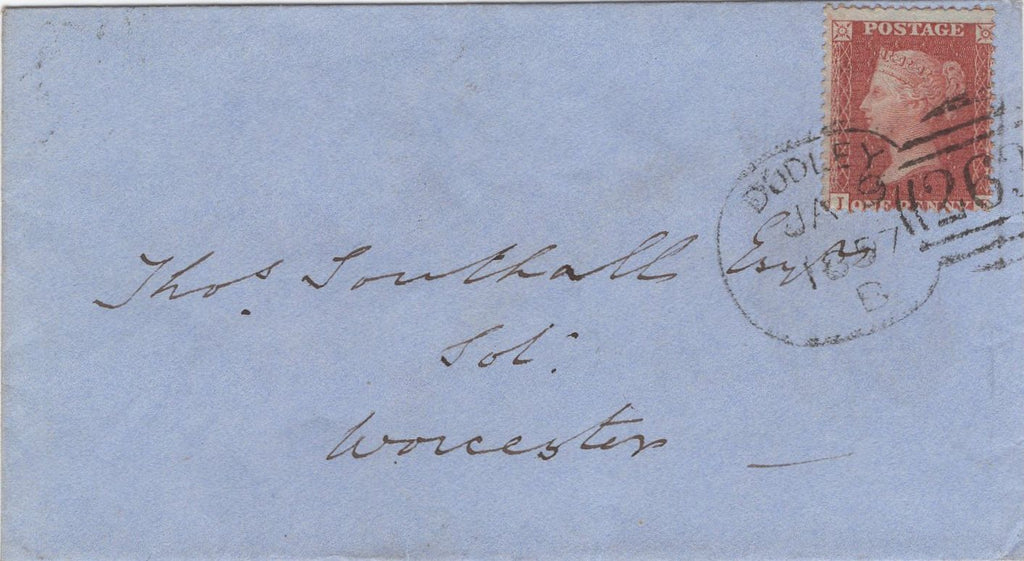 POSTAGE
I ONE PENNY
DUDLEY
JA 9
1857
B
263
Thos Southall Esqre
Solr
Worcester